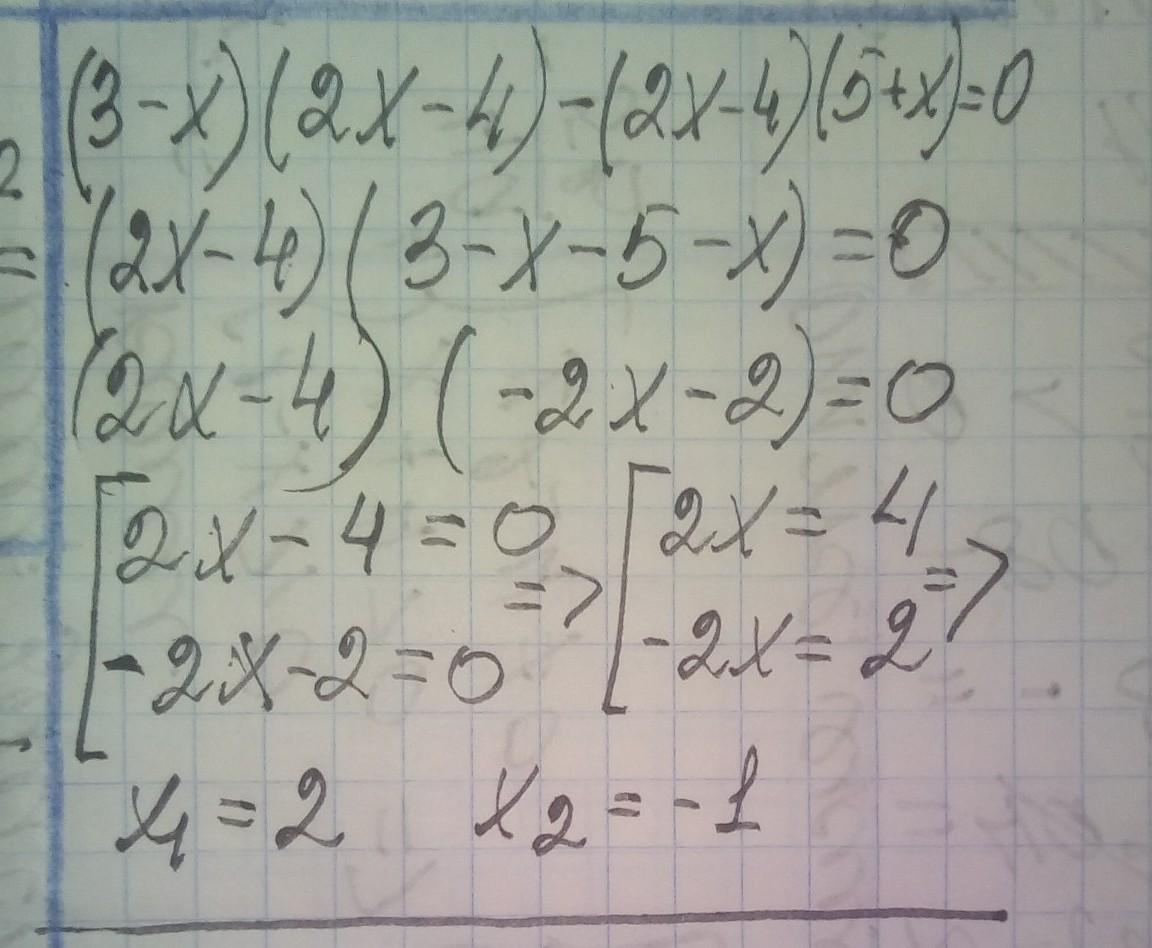 (3-x)(2x-4)-(2x-4)(5+x)=0
2
= (2x-4)(3-x-5-x)=0
(2x-4)(-2x-2)=0
[2x-4=0 => [2x=4 =>
-2x-2=0 -2x=2
x1=2 x2=-1